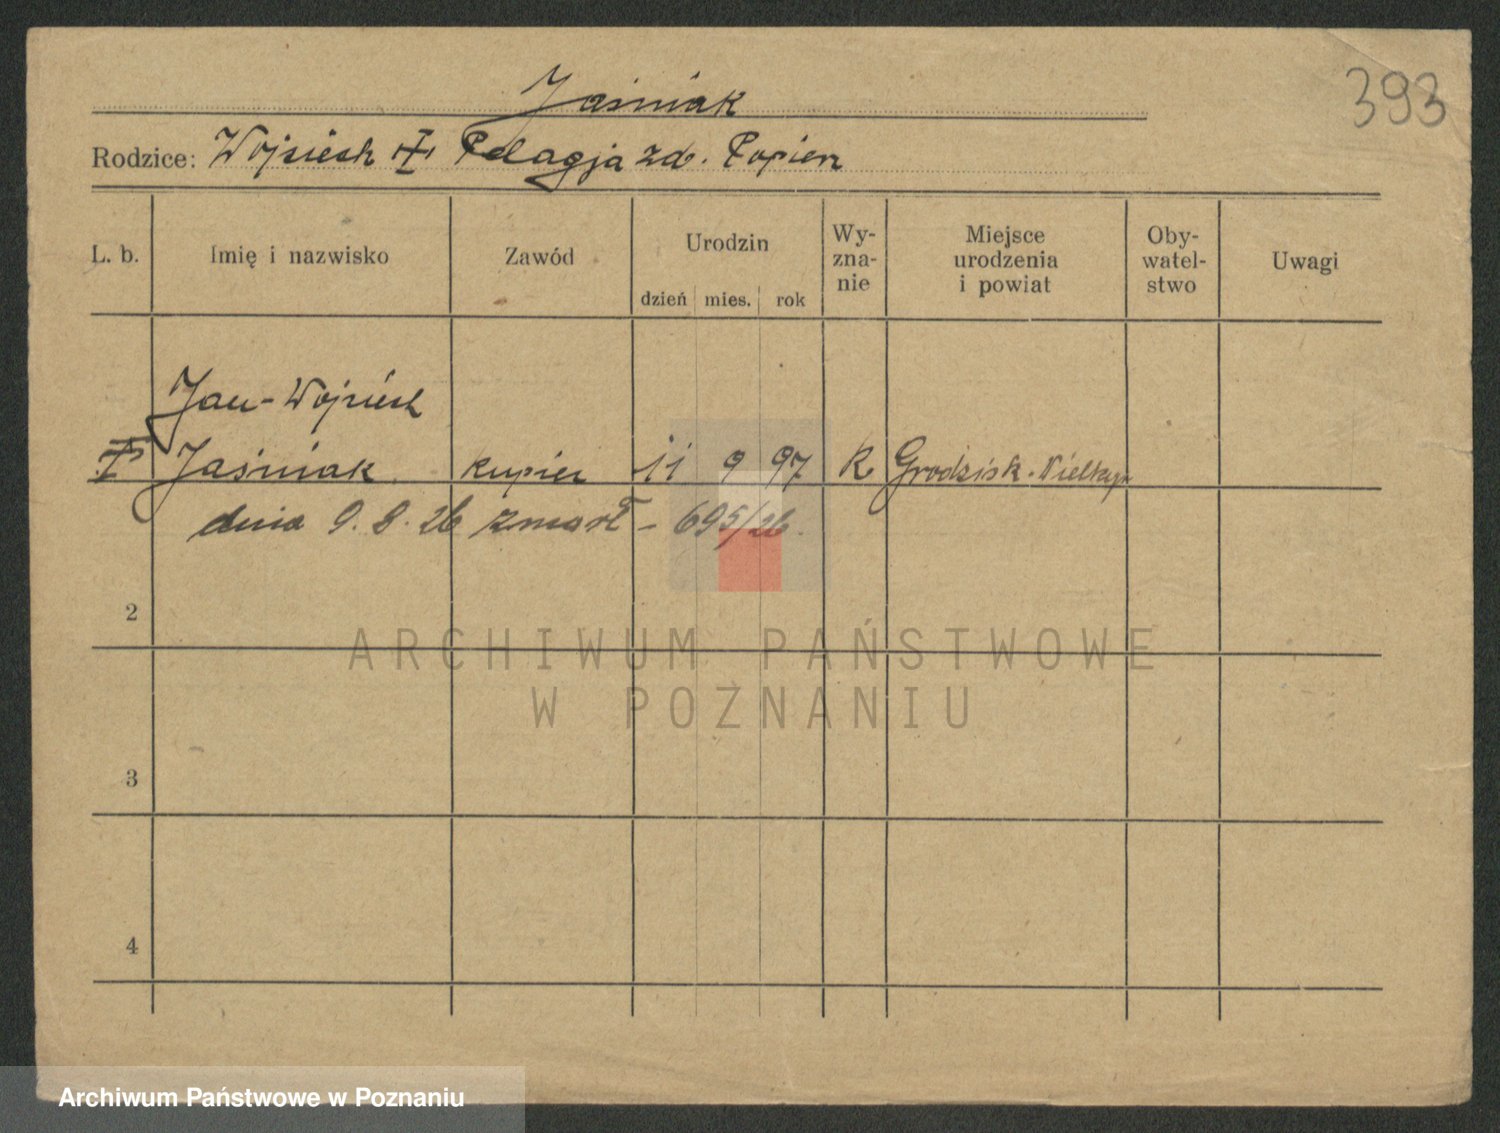 393
Jaśniak
Rodzice: Wojciech + Pelagja zd. Popiera
L. b. Imię i nazwisko Zawód Urodzin dzień mies. rok Wyznanie Miejsce urodzenia i powiat Obywatelstwo Uwagi
Jan-Wojciech
Jaśniak kupiec 11 9 97 k Grodzisk-Wielkp
dnia 9. 8. 26 zmarł - 695/26.
2
3
4
ARCHIWUM PAŃSTWOWE
W POZNANIU
Archiwum Państwowe w Poznaniu